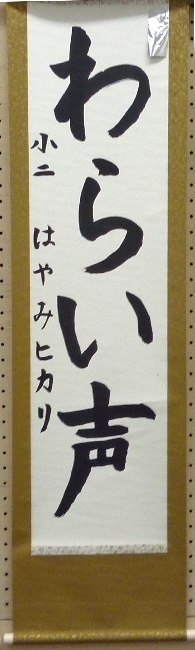 わらい声
小二 はやみヒカリ